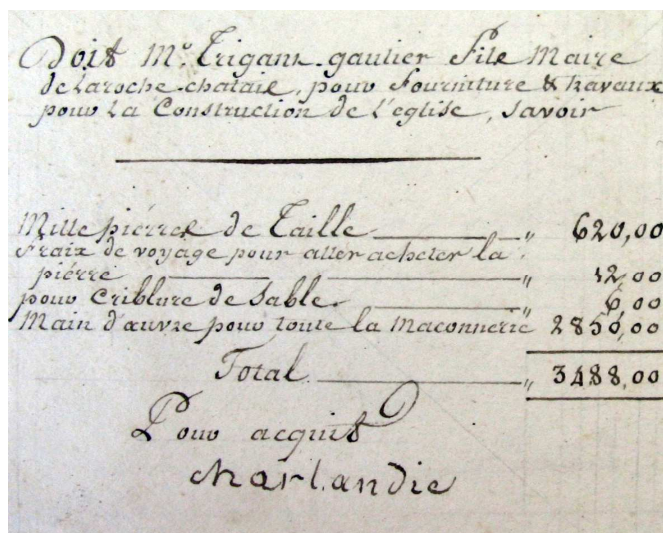 Doit Mr. Trigant-gautier Fils Maire
de Laroche-chalais, pour Fourniture & travaux
pour La Construction de l'eglise, Savoir
Mille pierres de Taille " 620,00
fraix de voyage pour aller acheter la
pierre " 12,00
pour Criblure de Sable " 6,00
Main d'auvre pour toute la Maconnerie 2850,00
Total " 3488,00
Pour acquit
Charlandie